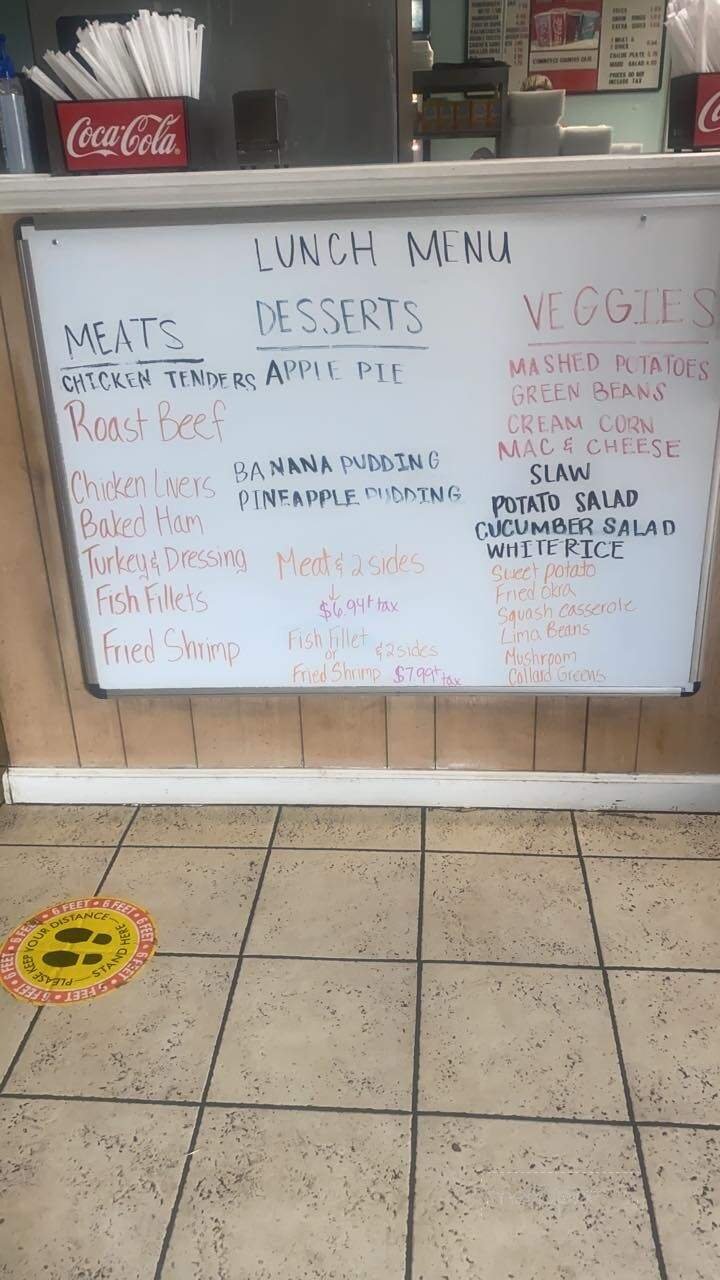 Coca-Cola
FRIES
1 MEAT &
PRICES DO NOT
INCLUDE TAX
LUNCH MENU
MEATS
CHICKEN TENDERS
Roast Beef
Chicken Livers
Baked Ham
Turkey & Dressing
Fish Fillets
Fried Shrimp
DESSERTS
APPLE PIE
BANANA PUDDING
PINEAPPLE PUDDING
Meat & 2 sides
↓
$6.94+tax
Fish Fillet
or & 2 sides
Fried Shrimp $7.99+tax
VEGGIES
MASHED POTATOES
GREEN BEANS
CREAM CORN
MAC & CHEESE
SLAW
POTATO SALAD
CUCUMBER SALAD
WHITE RICE
Sweet potato
Fried Okra
Squash casserole
Lima Beans
Mushroom
Collard Greens
PLEASE KEEP YOUR DISTANCE
STAND HERE
6 FEET • 6 FEET • 6 FEET • 6 FEET • 6 FEET • 6 FEET